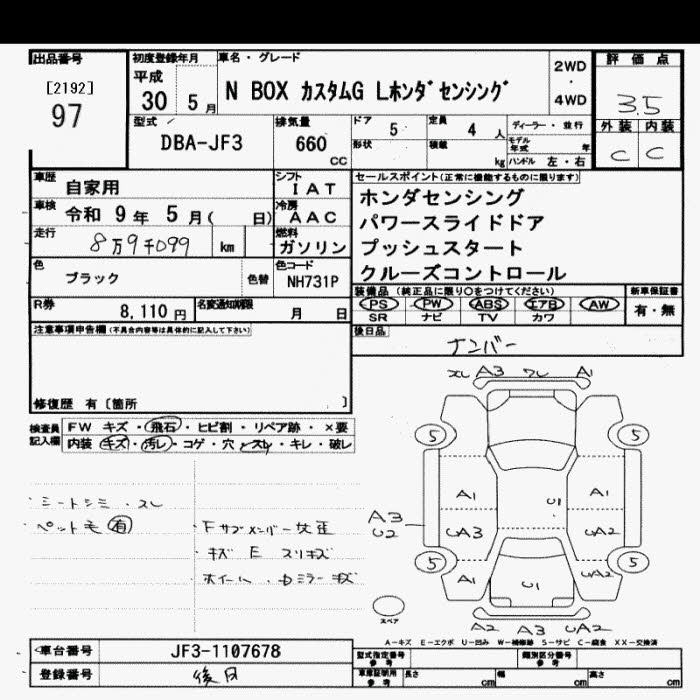 出品番号 初度登録年月 車名・グレード 2WD・4WD 評価点
[2192]
97
平成 30 5月 N BOX カスタムG Lホンダセンシング 3.5
型式 排気量 ドア 5 定員 4人 ディーラー・並行 外装 内装
DBA-JF3 660 CC 形状 積載 kg モデル年式 年 ハンドル 左・右 C C
車歴 自家用 シフト IAT セールスポイント(正常に機能するものに限ります)
車検 令和 9年 5月( 日) 冷房 AAC ホンダセンシング
走行 8万9千099 km 燃料 ガソリン パワースライドドア
プッシュスタート
色 ブラック 色替 色コード NH731P クルーズコントロール
R券 8,110円 名変通知期限 月 日 装備品(純正品に限り○をつけてください) 新車保証書
PS PW ABS エアB AW 有・無
SR ナビ TV カワ
注意事項申告欄(不具合内容等は具体的に記入して下さい) 後日品 ナンバー
修復歴 有〔箇所 〕
検査員記入欄 FW キズ・飛石・ヒビ割・リペア跡・×要
内装 キズ・汚レ・コゲ・穴・スレ・キレ・破レ
スレ A3 スレ A1
5 5
・シートシミ・スレ A1 U1 A1
ペット毛 有 A3 U2 UA3 UA2
・Fサブメンバー
・キズ E スリキズ 5 5
ホイール、 ミラーキズ A1 U1 UA2
スペア
A2 A3 UA2
A-キズ E-エクボ U-凹み W-補修跡 S-サビ C-腐食 XX-交換済
車台番号 JF3-1107678 型式指定番号 参考 類別区分番号 参考
登録番号 後日 車庫証明用 参考 長さ cm 幅 cm 高さ cm